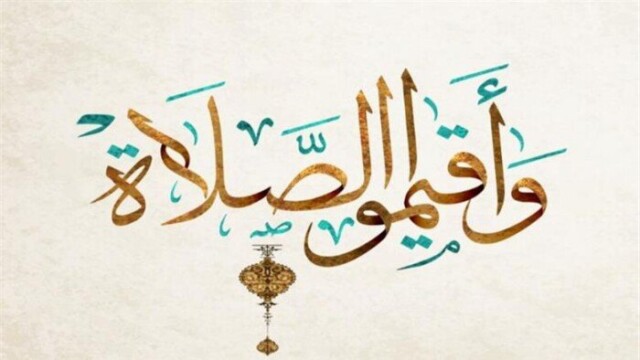 وَأَقيمو الصَّلَاة